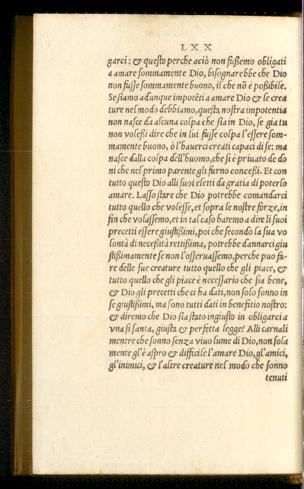 LXX
garci: & questo perche aciò non fussemo obligati
a amare sommamente Dio, bisognarebbe che Dio
non fusse sommamente buono, il che nō è possibile.
Se siamo adunque impotēti a amare Dio & le crea
ture nel modo debbiamo, questa nostra impotentia
non nasce da alcuna colpa che sia in Dio, se gia tu
non volessi dire che in lui fusse colpa l'essere som-
mamente buono, ò l'hauerci creati capaci di se: ma
nasce dalla colpa dell'huomo, che si è priuato de do
ni che nel primo parente gli furno concessi. Et con
tutto questo Dio alli suoi eletti da gratia di poterlo
amare. Lasso stare che Dio potrebbe comandarci
tutto quello che volesse, et sopra le nostre forze, in
fin che volassemo, et in tal caso haremo a dire li suoi
precetti essere giustissimi, poi che secondo la sua vo
lontà di necessità rettissima, potrebbe dannarci giu
stissimamente se non l'osseruassemo, perche puo fa-
re delle sue creature tutto quello che gli piace, &
tutto quello che gli piace è necessario che sia bene,
& Dio gli precetti che ci ha dati, non solo sonno in
se giustissimi, ma sono tutti dati in benefitio nostro:
& diremo che Dio sia stato ingiusto in obligarci a
vna si santa, giusta & perfetta legge? Alli carnali
mentre che sonno senza viuo lume di Dio, non sola
mente gl'è aspro & difficile l'amare Dio, gl'amici,
gl'inimici, & l'altre creature nel modo che sonno
tenuti